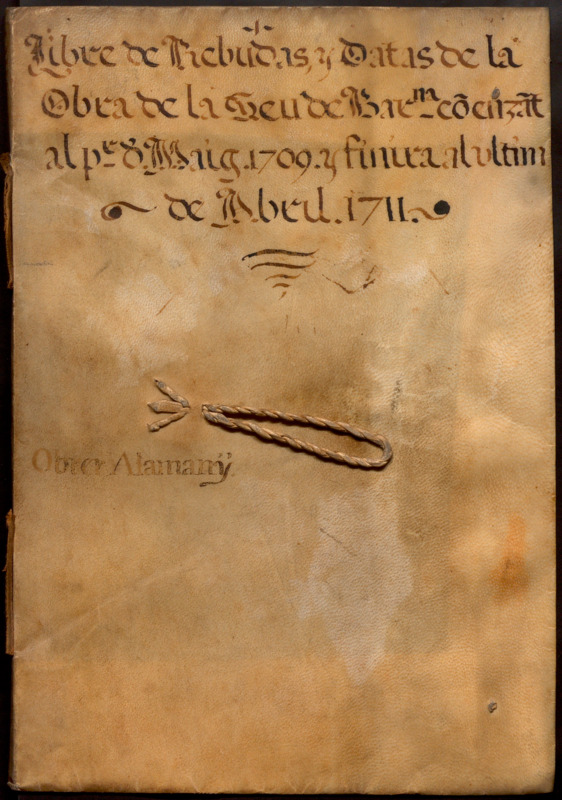 Llibre de Rebudas, y Datas de la
Obra de la Seu de Barna. coẽnzãt
al pr. d̃ Maig. 1709. y finira al ultim
de Abril. 1711.
Obrer Alamany.